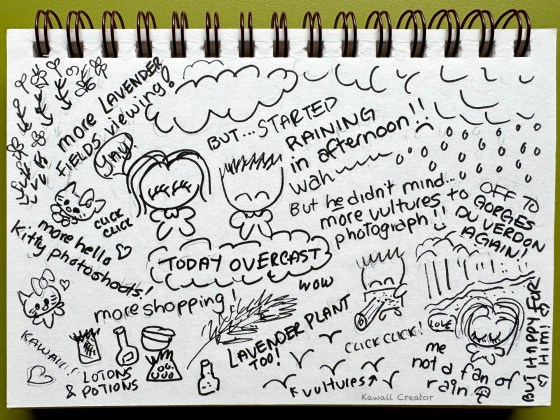 more LAVENDER
FIELDS viewing!
yay!
BUT... STARTED
RAINING
in afternoon!!
wah
But he didn't mind...
more vultures to
photograph!!
OFF TO
GORGES
DU VERDON
AGAIN!
CLICK
CLICK
more hello
Kitty photoshoots!
TODAY OVERCAST
WOW
more shopping!
LAVENDER PLANT
TOO!
CLICK CLICK!
KAWAII!!
LOTIONS
& POTIONS
vultures
love
me
not a fan of
rain
BUT HAPPY FUR
HIM!
Kawaii Creator